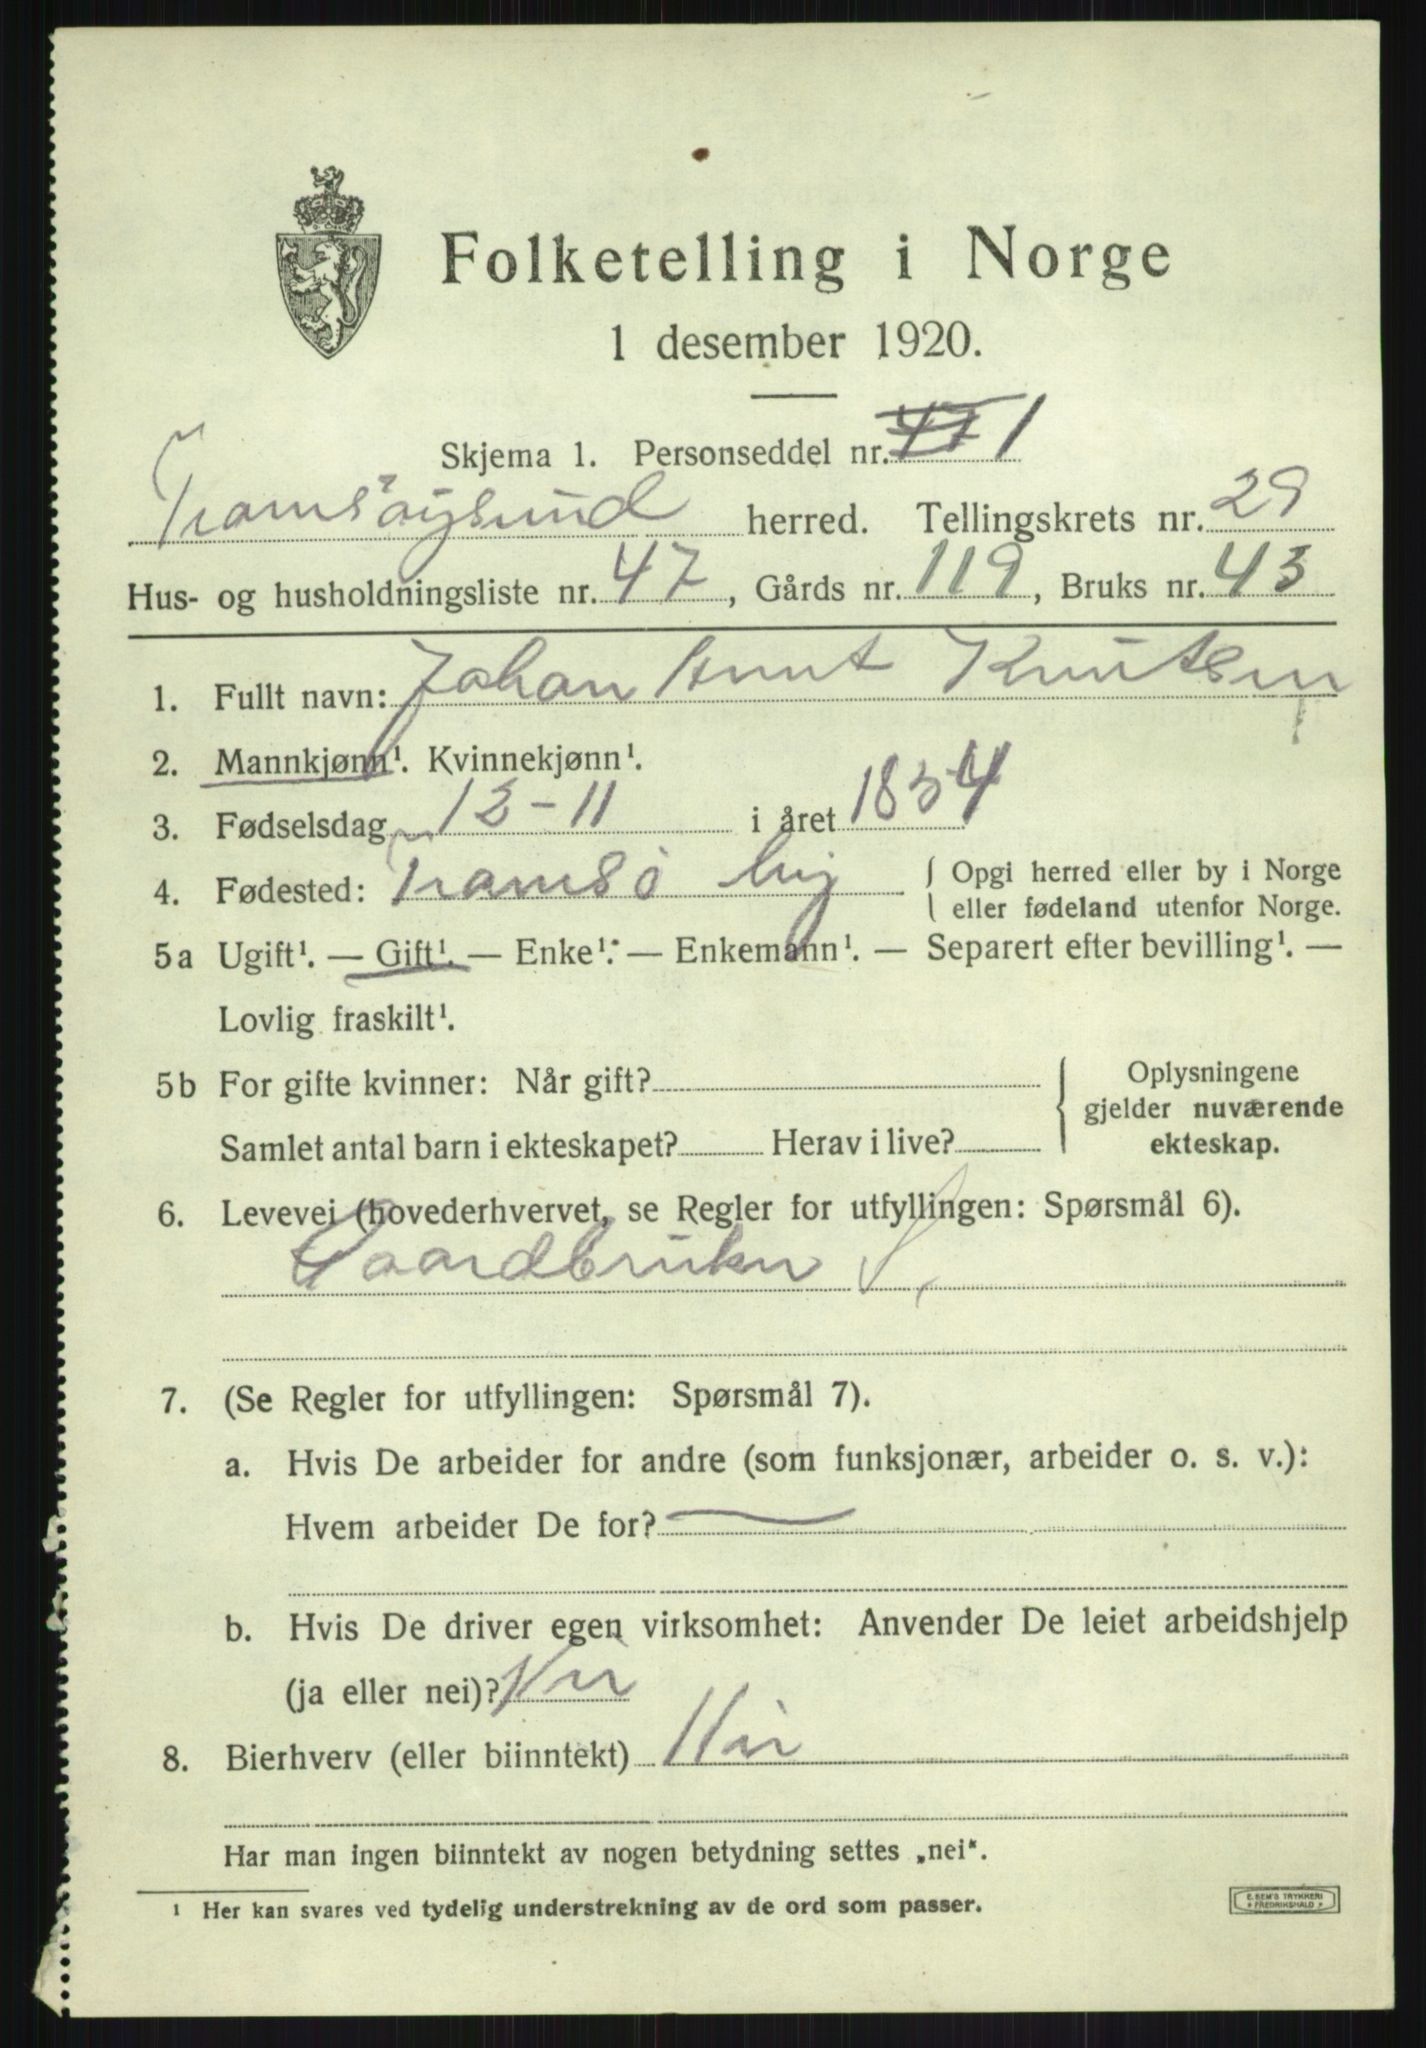 Folketelling i Norge
1 desember 1920.
Skjema 1. Personseddel nr. 1
Tromsøysund herred. Tellingskrets nr. 29
Hus- og husholdningsliste nr. 47, Gårds nr. 119, Bruks nr. 43
1. Fullt navn: Johan Knutsen
2. Mannkjønn¹. Kvinnekjønn¹.
3. Fødselsdag 12-11 i året 1854
4. Fødested: Tromsø by { Opgi herred eller by i Norge
eller fødeland utenfor Norge.
5a Ugift¹. — Gift¹. — Enke¹. — Enkemann¹. — Separert efter bevilling¹. —
Lovlig fraskilt¹.
5b For gifte kvinner: Når gift?
Samlet antal barn i ekteskapet? Herav i live?
{ Oplysningene
gjelder nuværende
ekteskap.
6. Levevei (hovederhvervet, se Regler for utfyllingen: Spørsmål 6).
Gaardbruker S.
7. (Se Regler for utfyllingen: Spørsmål 7).
a. Hvis De arbeider for andre (som funksjonær, arbeider o. s. v.):
Hvem arbeider De for? —
b. Hvis De driver egen virksomhet: Anvender De leiet arbeidshjelp
(ja eller nei)? Nei
8. Bierhverv (eller biinntekt) Nei
Har man ingen biinntekt av nogen betydning settes „nei“.
¹ Her kan svares ved tydelig understrekning av de ord som passer.
E. SEM'S TRYKKERI
FREDRIKSHALD